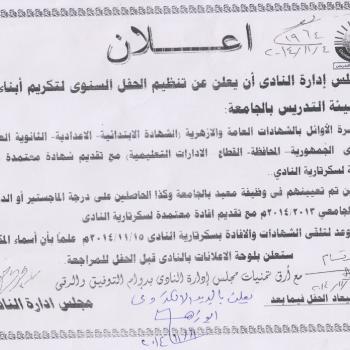 اعلان
١٩٦٤
٢٠١٤/١١/٤
لس إدارة النادى أن يعلن عن تنظيم الحفل السنوى لتكريم أبناء
يئة التدريس بالجامعة:
رة الأوائل بالشهادات العامة والازهرية (الشهادة الابتدائية- الاعدادية- الثانوية
ى الجمهورية- المحافظة- القطاع الادارات التعليمية) مع تقديم شهادة معتمدة
ة سكرتارية النادى.
ن تم تعيينهم فى وظيفة معيد بالجامعة وكذا الحاصلين على درجة الماجستير أو الد
جامعى ٢٠١٤/٢٠١٣م مع تقديم افادة معتمدة لسكرتارية النادى
وعد لتلقى الشهادات والافادة بسكرتارية النادى ٢٠١٤/١١/١٥م علماً بأن أسماء المك
ستعلن بلوحة الاعلانات بالنادى قبل الحفل للمراجعة.
مع أرق تمنيات مجلس إدارة النادى بدوام التوفيق والرقى
يعاد الحفل فيما بعد
مجلس ادارة الناد